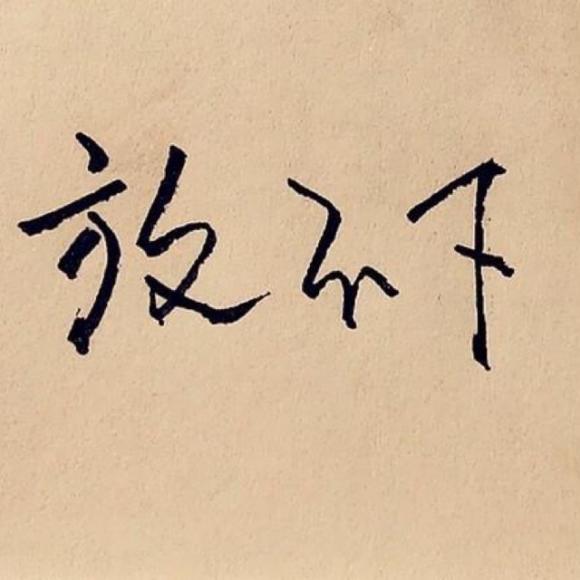 放不下